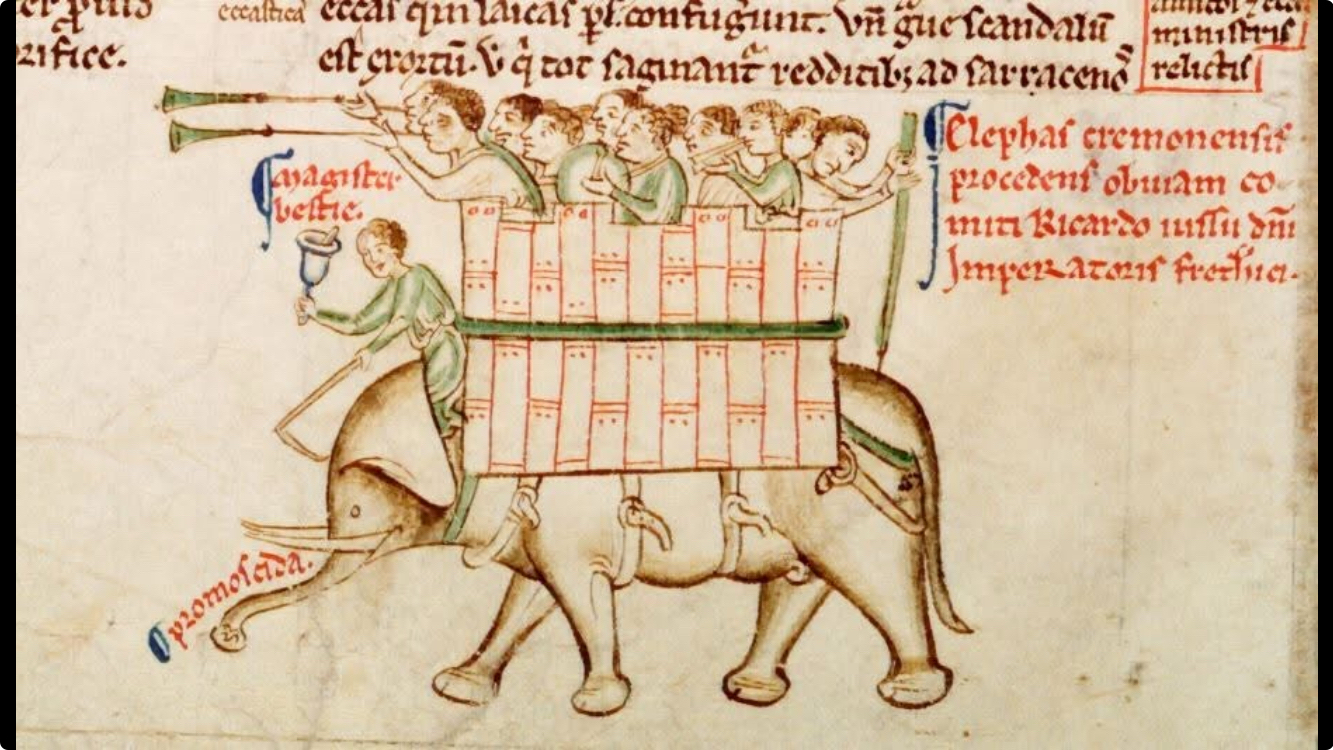 rifice.
eccastica
eccas qui laicas pl. confugiunt. Vn̄ gue scandalū
est exortū. V q̇ tot saginant reddititibꝫ ad sarracenos
ministris
relictis
magister
bestie.
Elephas cremonensis
procedens obuiam co-
miti Ricardo iussu dn̄i
Imperatoris fretherici.
promoscida.